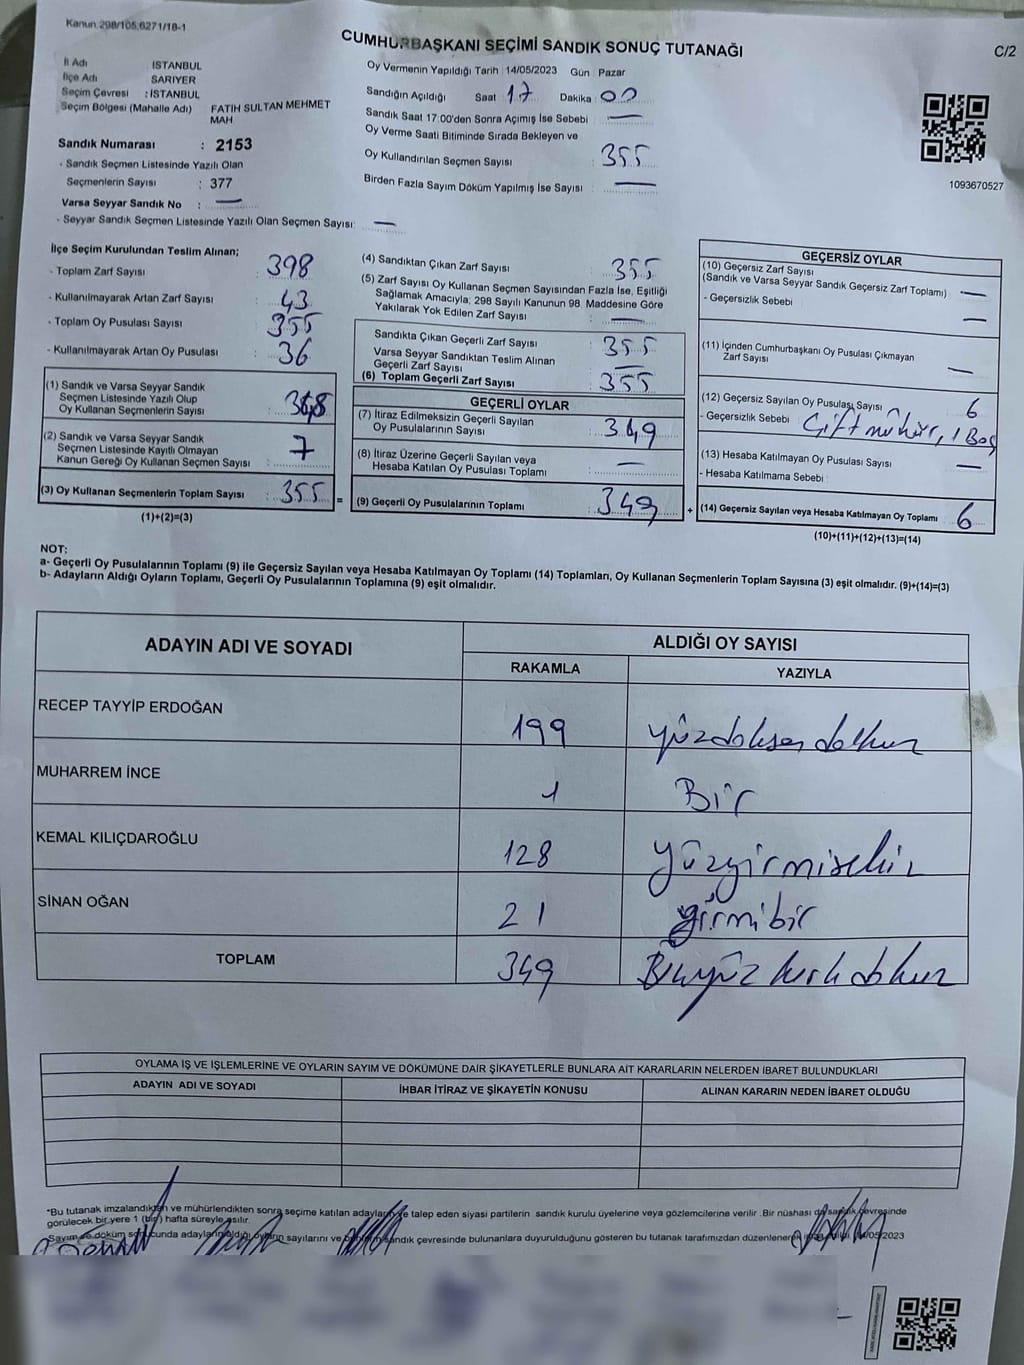 Kanun 298/105,6271/18-1
CUMHURBAŞKANI SEÇİMİ SANDIK SONUÇ TUTANAĞI
C/2
İl Adı : İSTANBUL
İlçe Adı : SARIYER
Seçim Çevresi : İSTANBUL
Seçim Bölgesi (Mahalle Adı) FATİH SULTAN MEHMET
MAH
Sandık Numarası : 2153
- Sandık Seçmen Listesinde Yazılı Olan
Seçmenlerin Sayısı : 377
Varsa Seyyar Sandık No : —
- Seyyar Sandık Seçmen Listesinde Yazılı Olan Seçmen Sayısı: —
Oy Vermenin Yapıldığı Tarih : 14/05/2023 Gün : Pazar
Sandığın Açıldığı Saat : 17 Dakika : 00
Sandık Saat 17:00'den Sonra Açımış İse Sebebi : —
Oy Verme Saati Bitiminde Sırada Bekleyen ve
Oy Kullandırılan Seçmen Sayısı : 355
Birden Fazla Sayım Döküm Yapılmış İse Sayısı : —
1093670527
İlçe Seçim Kurulundan Teslim Alınan;
- Toplam Zarf Sayısı : 398
- Kullanılmayarak Artan Zarf Sayısı : 43
- Toplam Oy Pusulası Sayısı : 355
- Kullanılmayarak Artan Oy Pusulası : 36
(1) Sandık ve Varsa Seyyar Sandık
Seçmen Listesinde Yazılı Olup
Oy Kullanan Seçmenlerin Sayısı : 348
(2) Sandık ve Varsa Seyyar Sandık
Seçmen Listesinde Kayıtlı Olmayan
Kanun Gereği Oy Kullanan Seçmen Sayısı : 7
(3) Oy Kullanan Seçmenlerin Toplam Sayısı : 355 =
(1)+(2)=(3)
(4) Sandıktan Çıkan Zarf Sayısı : 355
(5) Zarf Sayısı Oy Kullanan Seçmen Sayısından Fazla İse, Eşitliği
Sağlamak Amacıyla; 298 Sayılı Kanunun 98. Maddesine Göre
Yakılarak Yok Edilen Zarf Sayısı : —
Sandıkta Çıkan Geçerli Zarf Sayısı : 355
Varsa Seyyar Sandıktan Teslim Alınan
Geçerli Zarf Sayısı : —
(6) Toplam Geçerli Zarf Sayısı : 355
GEÇERLİ OYLAR
(7) İtiraz Edilmeksizin Geçerli Sayılan
Oy Pusulalarının Sayısı : 349
(8) İtiraz Üzerine Geçerli Sayılan veya
Hesaba Katılan Oy Pusulası Toplamı : —
(9) Geçerli Oy Pusulalarının Toplamı : 349 +
GEÇERSİZ OYLAR
(10) Geçersiz Zarf Sayısı
(Sandık ve Varsa Seyyar Sandık Geçersiz Zarf Toplamı) : —
- Geçersizlik Sebebi : —
(11) İçinden Cumhurbaşkanı Oy Pusulası Çıkmayan
Zarf Sayısı : —
(12) Geçersiz Sayılan Oy Pusulası Sayısı : 6
- Geçersizlik Sebebi : Çift mühür, 1 Boş
(13) Hesaba Katılmayan Oy Pusulası Sayısı : —
- Hesaba Katılmama Sebebi :
(14) Geçersiz Sayılan veya Hesaba Katılmayan Oy Toplamı : 6
(10)+(11)+(12)+(13)=(14)
NOT:
a- Geçerli Oy Pusulalarının Toplamı (9) ile Geçersiz Sayılan veya Hesaba Katılmayan Oy Toplamı (14) Toplamları, Oy Kullanan Seçmenlerin Toplam Sayısına (3) eşit olmalıdır. (9)+(14)=(3)
b- Adayların Aldığı Oyların Toplamı, Geçerli Oy Pusulalarının Toplamına (9) eşit olmalıdır.
ADAYIN ADI VE SOYADI ALDIĞI OY SAYISI
RAKAMLA YAZIYLA
RECEP TAYYİP ERDOĞAN 199 yüzdoksan dokuz
MUHARREM İNCE 1 Bir
KEMAL KILIÇDAROĞLU 128 yüzyirmisekiz
SİNAN OĞAN 21 yirmibir
TOPLAM 349 kırk dokuz
OYLAMA İŞ VE İŞLEMLERİNE VE OYLARIN SAYIM VE DÖKÜMÜNE DAİR ŞİKAYETLERLE BUNLARA AİT KARARLARIN NELERDEN İBARET BULUNDUKLARI
ADAYIN ADI VE SOYADI İHBAR İTİRAZ VE ŞİKAYETİN KONUSU ALINAN KARARIN NEDEN İBARET OLDUĞU
*Bu tutanak imzalandıktan ve mühürlendikten sonra seçime katılan adaylara ve talep eden siyasi partilerin sandık kurulu üyelerine veya gözlemcilerine verilir .Bir nüshası da sandık çevresinde
görülecek bir yere 1 (bir) hafta süreyle asılır.
Sayım ve döküm sonucunda adayların aldığı oyların sayılarını ve bunların sandık çevresinde bulunanlara duyurulduğunu gösteren bu tutanak tarafımızdan düzenlenerek